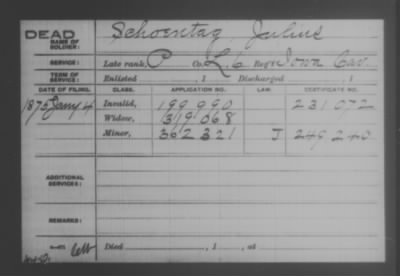 DEAD
NAME OF SOLDIER: Schoentag, Julius
SERVICE: Late rank, P Co. L, 6 Reg't Iowa Cav.
TERM OF SERVICE: Enlisted , 1 Discharged , 1
DATE OF FILING. CLASS. APPLICATION NO. LAW. CERTIFICATE NO.
1875 Jany 4 Invalid, 199 990 231 072
Widow, 319 068
Minor, 362 321 J 249 240
ADDITIONAL SERVICES:
REMARKS:
Died , 1 , at